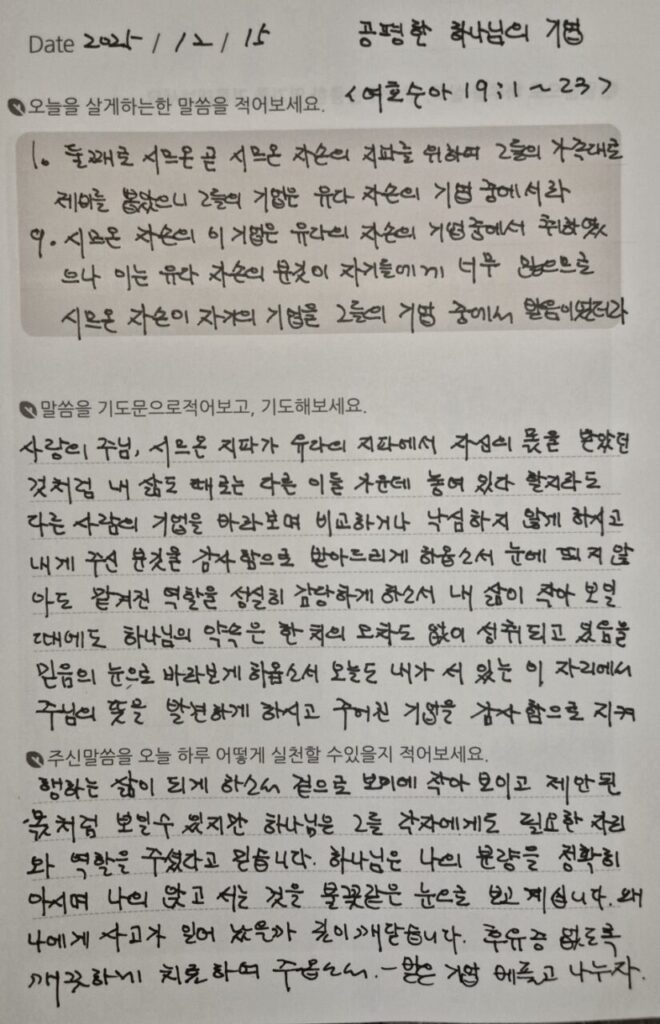 Date 2025 / 12 / 15 공평한 하나님의 기업
오늘을 살게하는한 말씀을 적어보세요. <여호수아 19:1~23>
1. 둘째로 시므온 곧 시므온 자손의 지파를 위하여 그들의 가족대로
제비를 뽑았으니 그들의 기업은 유다 자손의 기업 중에서라
9. 시므온 자손의 이 기업은 유다의 자손의 기업중에서 취하였
으나 이는 유다 자손의 분깃이 자기들에게 너무 많으므로
시므온 자손이 자기의 기업을 그들의 기업 중에서 받음이었더라
말씀을 기도문으로적어보고, 기도해보세요.
사랑의 주님, 시므온 지파가 유다의 지파에서 자신의 몫을 받았던
것처럼 내 삶도 때로는 다른 이들 가운데 놓여 있다 할지라도
다른 사람의 기업을 바라보며 비교하거나 낙심하지 않게 하시고
내게 주신 분깃을 감사함으로 받아드리게 하옵소서 눈에 띄지 않
아도 맡겨진 역할을 성실히 감당하게 하소서 내 삶이 작아 보일
때에도 하나님의 약속은 한 치의 오차도 없이 성취되고 있음을
믿음의 눈으로 바라보게 하옵소서 오늘도 내가 서 있는 이 자리에서
주님의 뜻을 발견하게 하시고 주어진 기업을 감사함으로 지켜
주신말씀을 오늘 하루 어떻게 실천할 수있을지 적어보세요.
행하는 삶이 되게 하소서 겉으로 보기에 작아 보이고 제안된
몫처럼 보일수 있지만 하나님은 그들 각자에게도 필요한 자리
와 역할을 주셨다고 믿습니다. 하나님은 나의 분량을 정확히
아시며 나의 앉고 서는 것을 불꽃같은 눈으로 보고 계십니다. 왜
나에게 사고가 일어 났을까 깊이 깨닫습니다. 후유증 없도록
깨끗하게 치료하여 주옵소서. - 맡은 기업 베풀고 나누자.